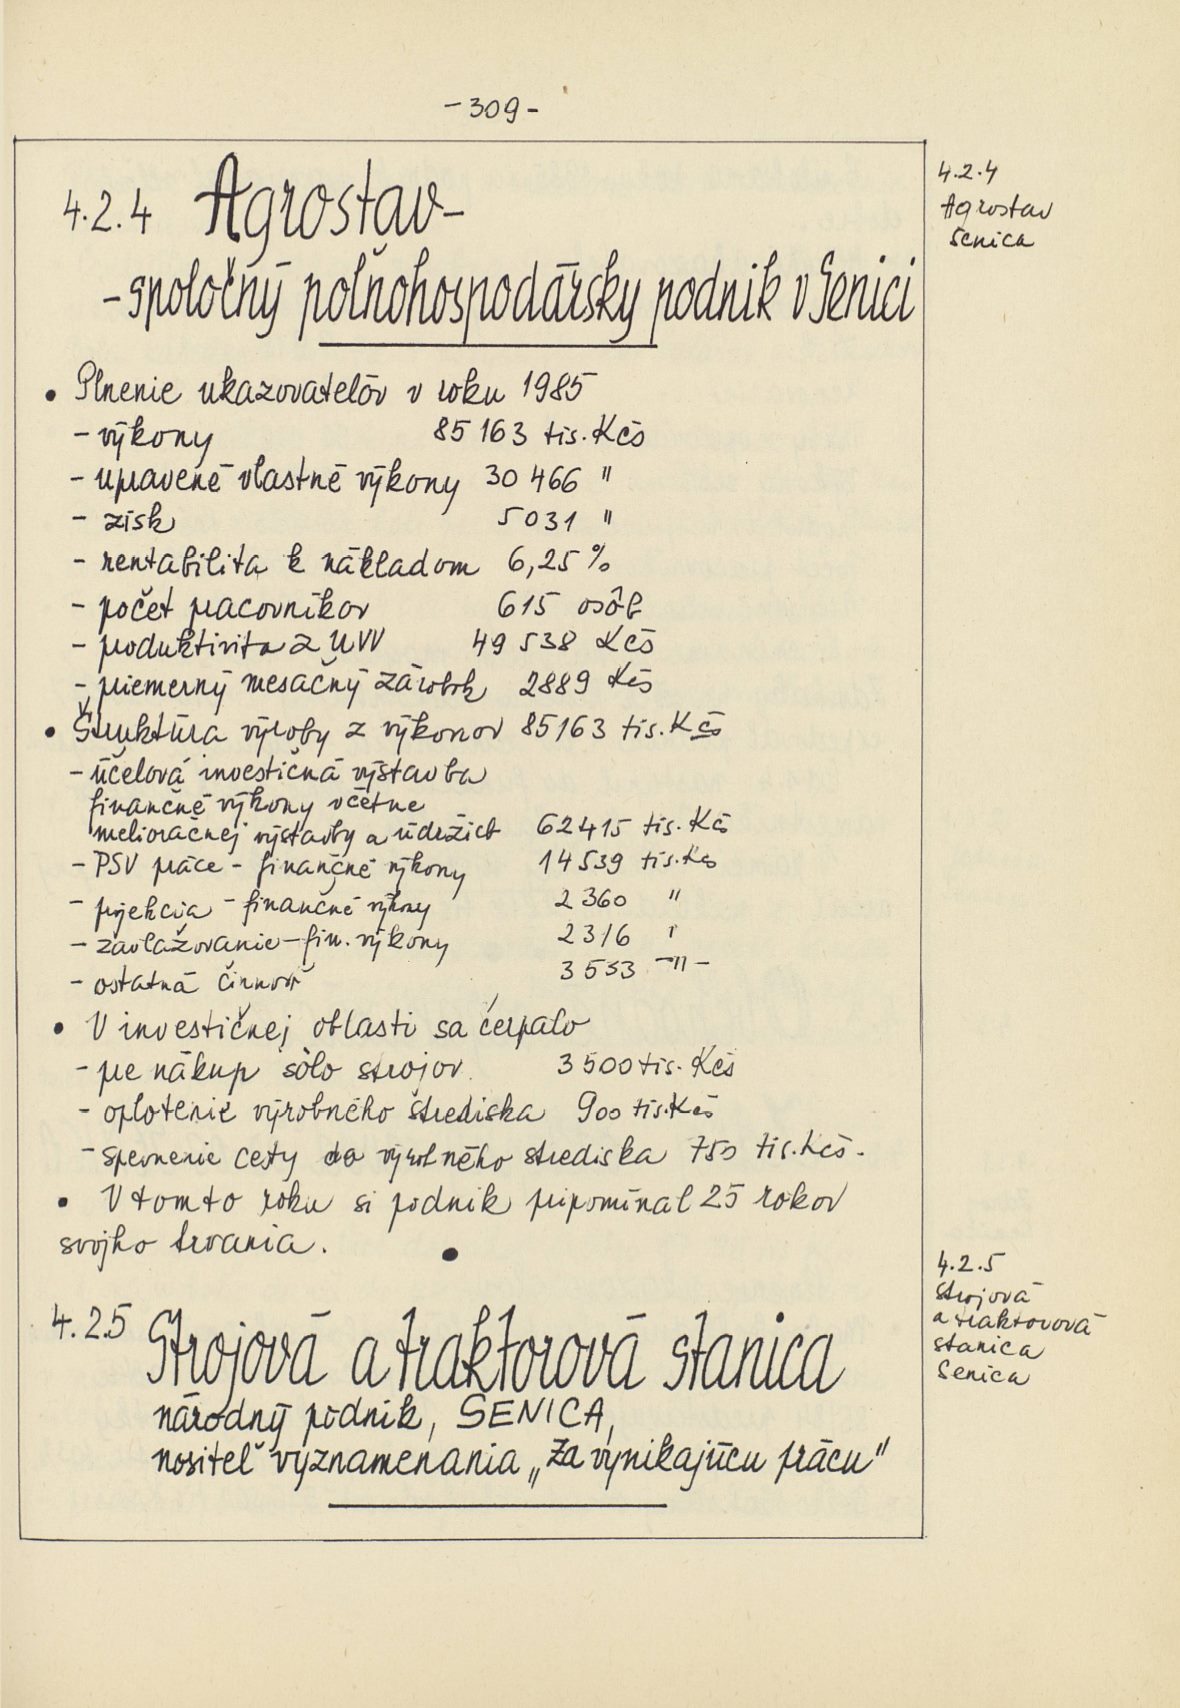 -309-
4.2.4 Agrostav-
-spoločný poľnohospodársky podnik v Senici
4.2.4
Agrostav
Senica
• Plnenie ukazovateľov v roku 1985
- výkony 85 163 tis. Kčs
- upravené vlastné výkony 30 466 "
- zisk 5 031 "
- rentabilita k nákladom 6,25 %
- počet pracovníkov 615 osôb
- produktivita z UVV 49 538 Kčs
- priemerný mesačný zárobok 2889 Kčs
• Štruktúra výroby z výkonov 85163 tis. Kčs
- účelová investičná výstavba
finančné výkony včetne
melioračnej výstavby a údržieb 62415 tis. Kčs
- PSV práce - finančné výkony 14539 tis. Kčs
- projekcia - finančné výkony 2 360 "
- zavlažovanie - fin. výkony 2316 "
- ostatná činnosť 3 553 -"-
• V investičnej oblasti sa čerpalo
- pre nákup sólo strojov 3 500 tis. Kčs
- oplotenie výrobného strediska 900 tis. Kčs
- spevnenie cesty do výrobného strediska 750 tis. Kčs.
• V tomto roku si podnik pripomínal 25 rokov
svojho trvania.
4.2.5 Strojová a traktorová stanica
národný podnik, SENICA,
nositeľ vyznamenania „Za vynikajúcu prácu"
4.2.5
Strojová
a traktorová
stanica
Senica